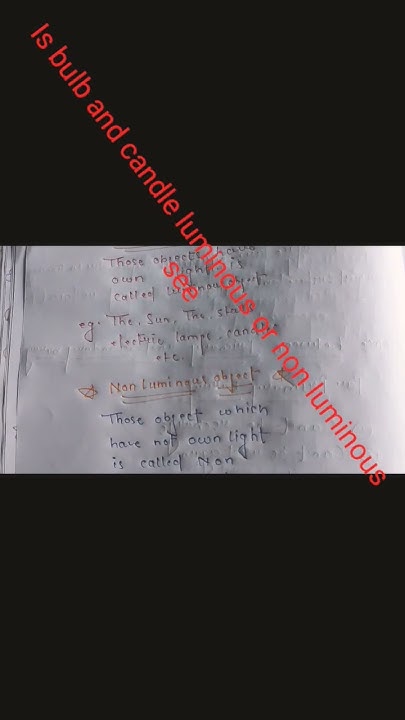 Is bulb and candle luminous or non luminous
see
Those object
own light is
called luminous object
eg. The Sun, The stars
electric lamps, candle
etc.
Non Luminous object
Those object which
have not own light
is called Non